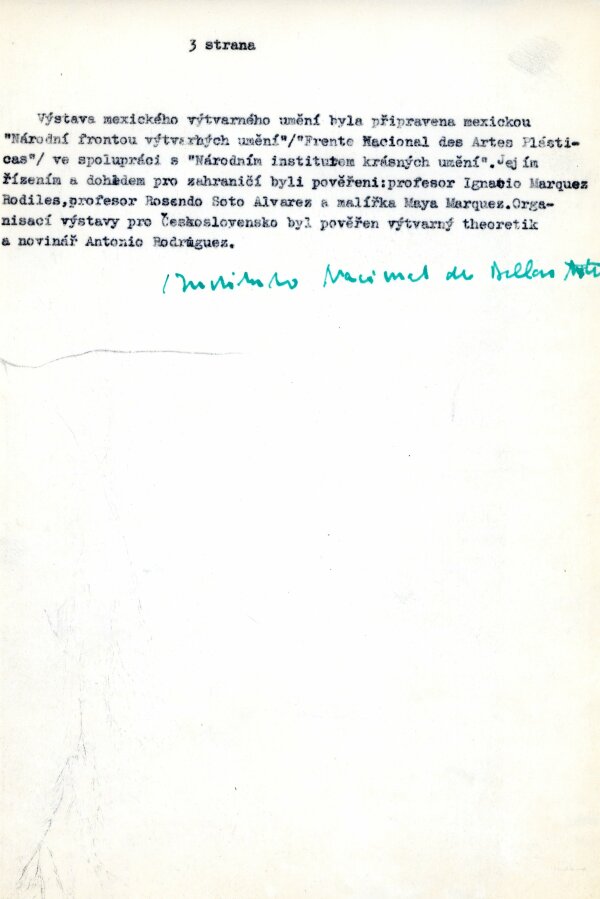 3 strana
Výstava mexického výtvarného umění byla připravena mexickou
"Národní frontou výtvarných umění"/"Frente Nacional des Artes Plásti-
cas"/ ve spolupráci s "Národním institutem krásných umění".Jejím
řízením a dohledem pro zahraničí byli pověřeni:profesor Ignacio Marquez
Rodiles,profesor Rosendo Soto Alvarez a malířka Maya Marquez.Orga-
nisací výstavy pro Československo byl pověřen výtvarný theoretik
a novinář Antonio Rodríguez.
Instituto Nacional de Bellas Artes